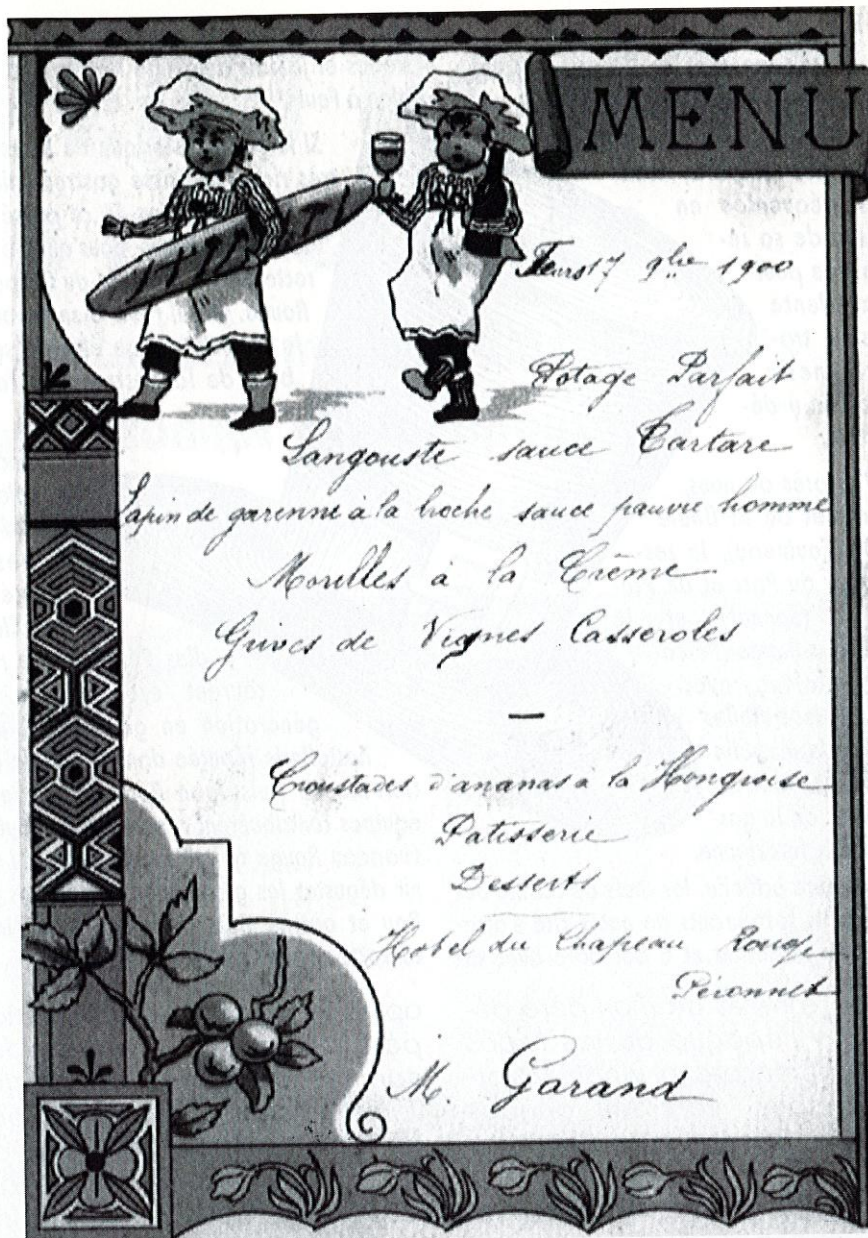 MENU
Feurs 17 9bre 1900
Potage Parfait
Langouste sauce Tartare
Lapin de garenne à la broche sauce pauvre homme
Morilles à la Crème
Grives de Vignes Casseroles
—
Croustades d'ananas à la Hongroise
Patisserie
Desserts
Hotel du Chapeau Rouge
Péronnet
M. Garand